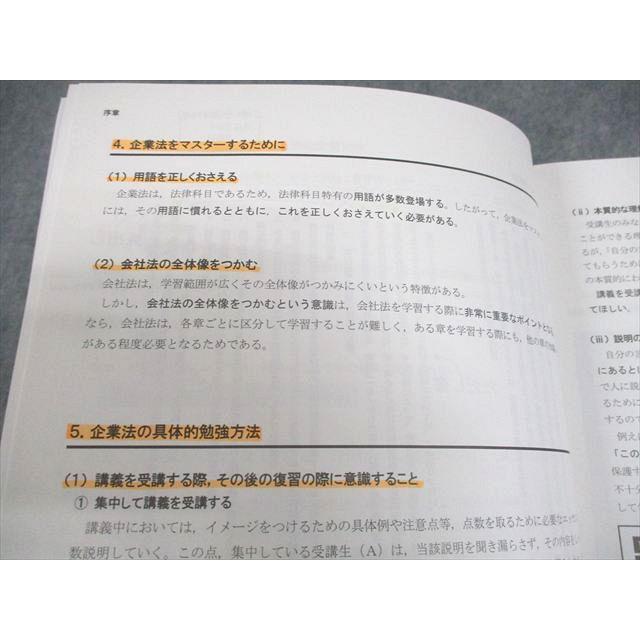 序章
4. 企業法をマスターするために
(1) 用語を正しくおさえる
企業法は，法律科目であるため，法律科目特有の用語が多数登場する。したがって，企業法をマス
には，その用語に慣れるとともに，これを正しくおさえていく必要がある。
(2) 会社法の全体像をつかむ
会社法は，学習範囲が広くその全体像がつかみにくいという特徴がある。
しかし，会社法の全体像をつかむという意識は，会社法を学習する際に非常に重要なポイントとな
なら，会社法は，各章ごとに区分して学習することが難しく，ある章を学習する際にも，他の章の
がある程度必要となるためである。
5. 企業法の具体的勉強方法
(1) 講義を受講する際，その後の復習の際に意識すること
① 集中して講義を受講する
講義中においては，イメージをつけるための具体例や注意点等，点数を取るために必要な
数説明していく。この点，集中している受講生（A）は，当該説明を聞き漏らさず，その内容を
(ⅱ) 本質的な理
受講生のみな
ことができる理
るが，「自分の
てもらうために
の本質的にわ
講義を受講
てほしい。
(ⅲ) 説明の
自分の言
にあると
で人に説
るために
するので
例え
「この
保護す
不十分
して